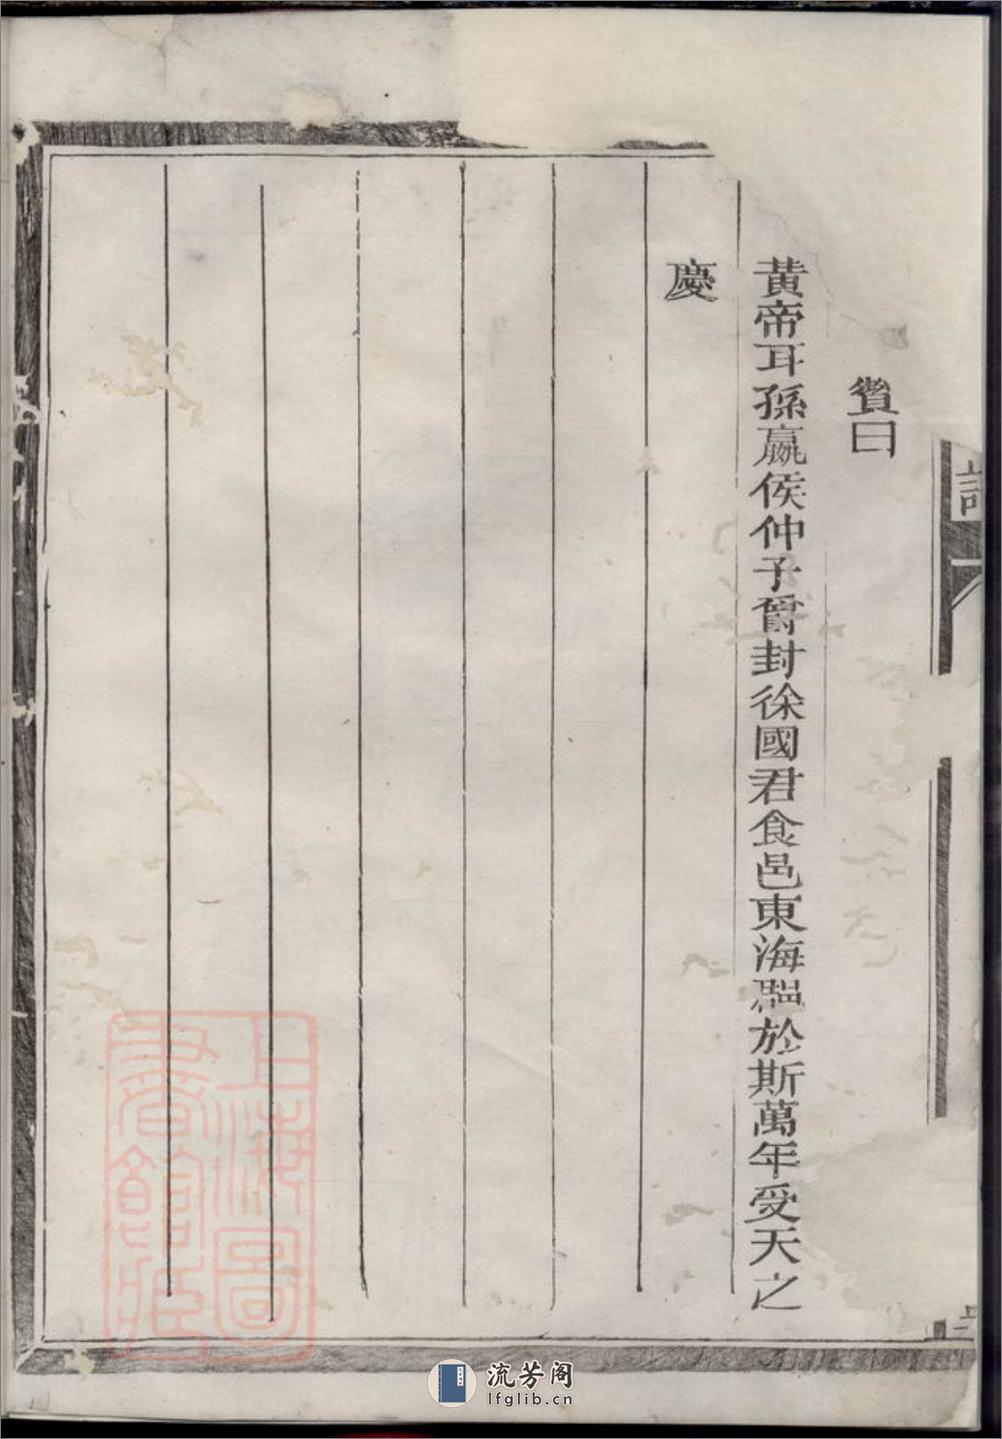 贊曰
黃帝耳孫嬴侯仲子爵封徐國君食邑東海郡於斯萬年受天之
慶
上海圖
書館藏
流芳阁
lfglib.cn